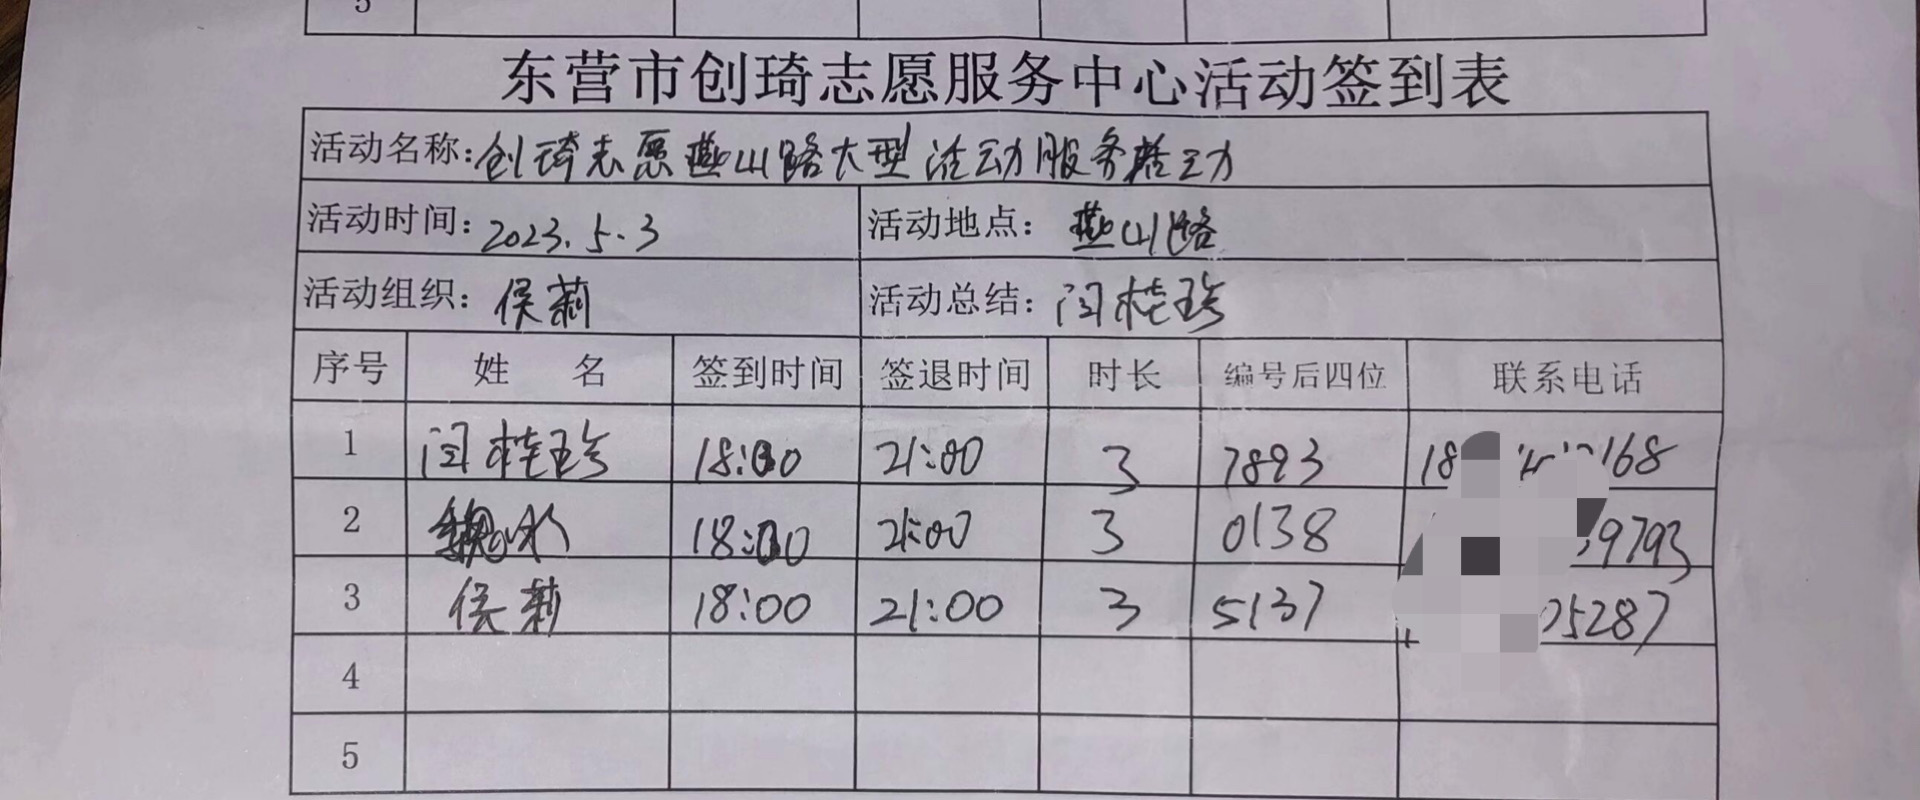 5
东营市创琦志愿服务中心活动签到表
活动名称:创琦志愿燕山路大型活动服务活动
活动时间:2023.5.3 活动地点:燕山路
活动组织:侯莉 活动总结:闫桂珍
序号 姓 名 签到时间 签退时间 时长 编号后四位 联系电话
1 闫桂珍 18:00 21:00 3 7893 18 168
2 18:00 21:00 3 0138 9793
3 侯莉 18:00 21:00 3 5137 05287
4
5